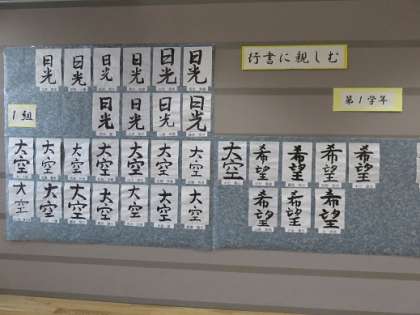 行書に親しむ
第1学年
1組
日光 日光 日光 日光 日光 日光
日光 日光 日光 日光
大空 大空 大空 大空 大空 大空 大空 大空 希望 希望 希望 希望
大空 大空 大空 大空 大空 大空 大空 希望 希望 希望